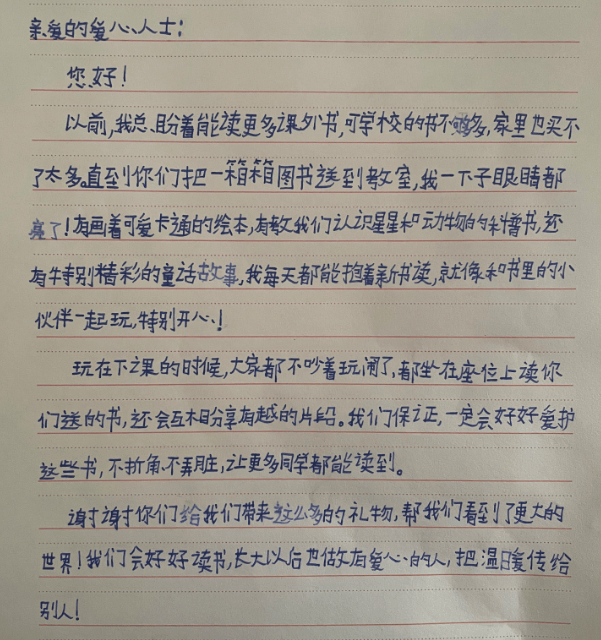 亲爱的爱心人士:
您好!
以前,我总盼着能读更多课外书,可学校的书不够多,家里也买不
了太多。直到你们把一箱箱图书送到教室,我一下子眼睛都
亮了!有画着可爱卡通的绘本,有教我们认识星星和动物的科普书,还
有特别精彩的童话故事,我每天都能抱着新书读,就像和书里的小
伙伴一起玩,特别开心!
玩在下课的时候,大家都不吵着玩闹了,都坐在座位上读你
们送的书,还会互相分享有趣的片段。我们保证,一定会好好爱护
这些书,不折角不弄脏,让更多同学都能读到。
谢谢你们给我们带来这么多的礼物,帮我们看到了更大的
世界!我们会好好读书,长大以后也做有爱心的人,把温暖传给
别人!